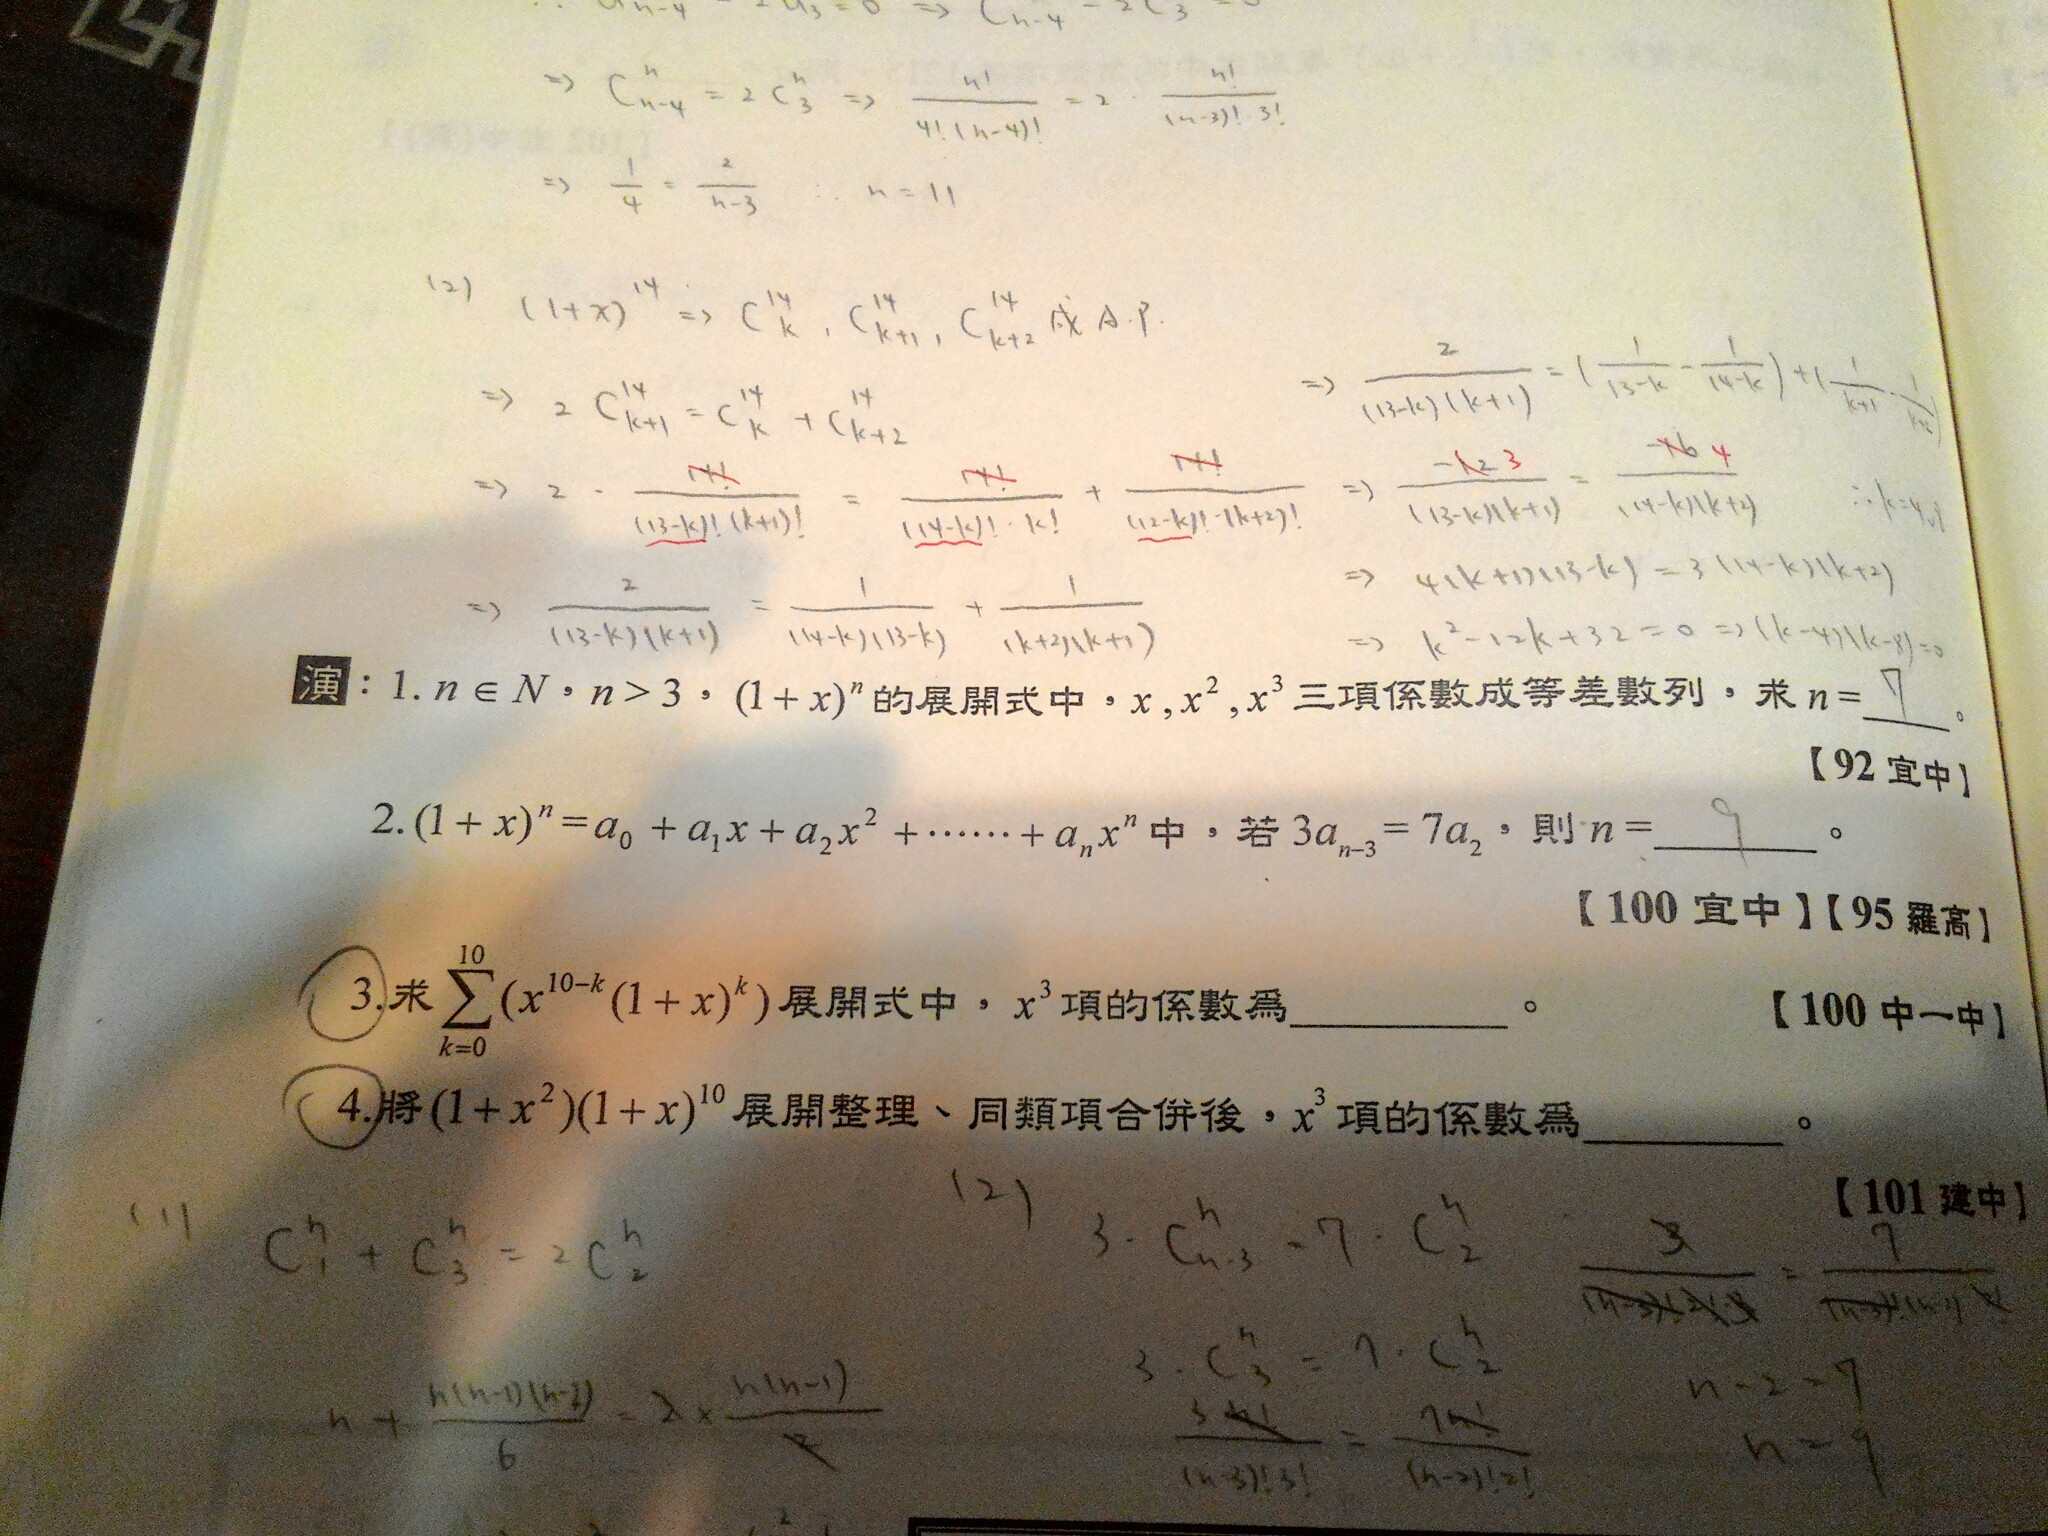 ⇒ C^n_{n-4} = 2C^n_3 ⇒ n!/(4!(n-4)!) = 2 · n!/((n-3)!·3!)
⇒ 1/4 = 2/(n-3) ∴ n = 11
(2) (1+x)^14 ⇒ C^14_k, C^14_{k+1}, C^14_{k+2} 成 A.P.
⇒ 2C^14_{k+1} = C^14_k + C^14_{k+2}
⇒ 2 · 14!/((13-k)!(k+1)!) = 14!/((14-k)!·k!) + 14!/((12-k)!·(k+2)!)
⇒ 2/((13-k)(k+1)) = 1/((14-k)(13-k)) + 1/((k+2)(k+1))
⇒ 2/((13-k)(k+1)) = (1/(13-k) - 1/(14-k)) + (1/(k+1) - 1/(k+2))
⇒ -12 3/((13-k)(k+1)) = -16 4/((14-k)(k+2)) ∴ k=4,8
⇒ 4(k+1)(13-k) = 3(14-k)(k+2)
⇒ k²-12k+32=0 ⇒ (k-4)(k-8)=0
演：1. n∈N，n>3，(1+x)^n 的展開式中，x,x²,x³三項係數成等差數列，求n=7。
【92 宜中】
2.(1+x)^n=a₀+a₁x+a₂x²+……+aₙx^n中，若3a_{n-3}=7a₂，則n=9。
【100 宜中】【95 羅高】
3.求∑_{k=0}^{10}(x^{10-k}(1+x)^k)展開式中，x³項的係數為______。 【100 中一中】
4.將(1+x²)(1+x)^10展開整理、同類項合併後，x³項的係數為______。
【101 建中】
(1) C^n_1 + C^n_3 = 2C^n_2
n + n(n-1)(n-2)/6 = 2 × n(n-1)/2
(2) 3·C^n_{n-3} = 7·C^n_2
3·C^n_3 = 7·C^n_2
3n!/((n-3)!3!) = 7n!/((n-2)!2!)
n-2=7
n=9